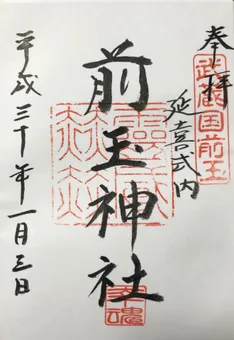 奉拝
武蔵国前玉
延喜式内
前玉神社
幸魂
平成三十年一月三日